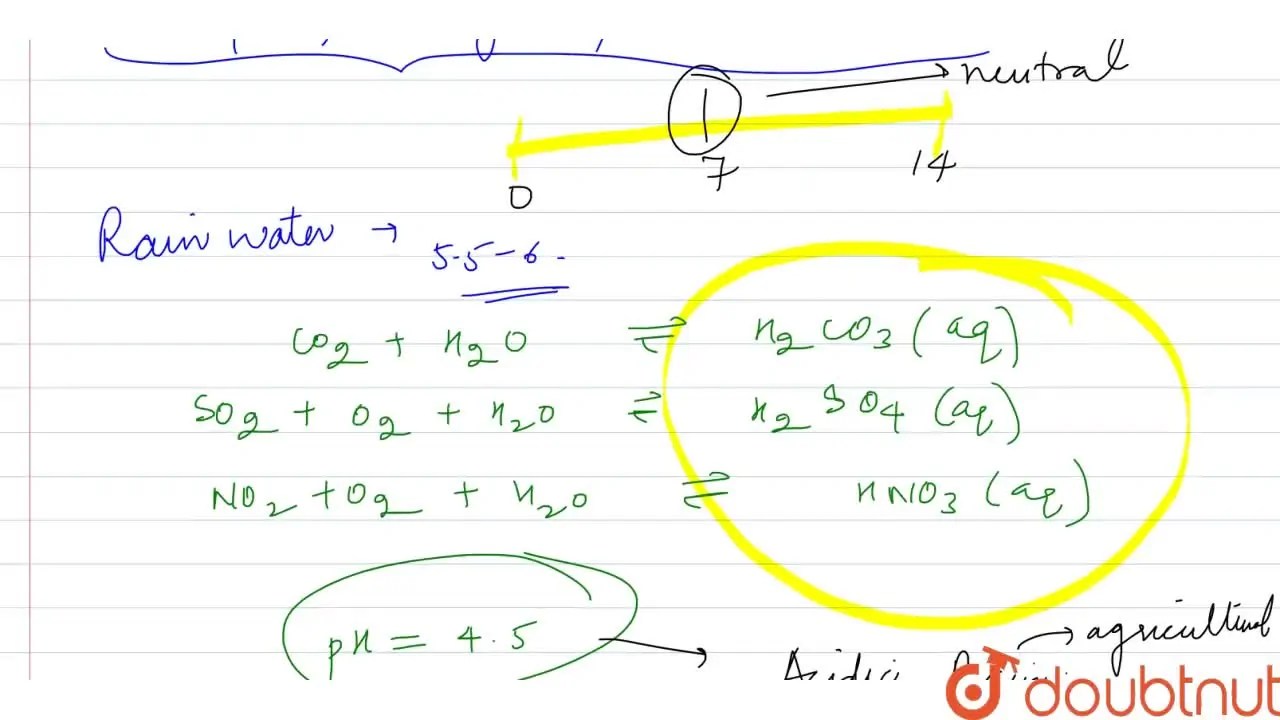 neutral
0 7 14
Rain water → 5.5 – 6.
CO₂ + H₂O ⇌ H₂CO₃ (aq)
SO₂ + O₂ + H₂O ⇌ H₂SO₄ (aq)
NO₂ + O₂ + H₂O ⇌ HNO₃ (aq)
→ agricultural
pH = 4.5 →
doubtnut